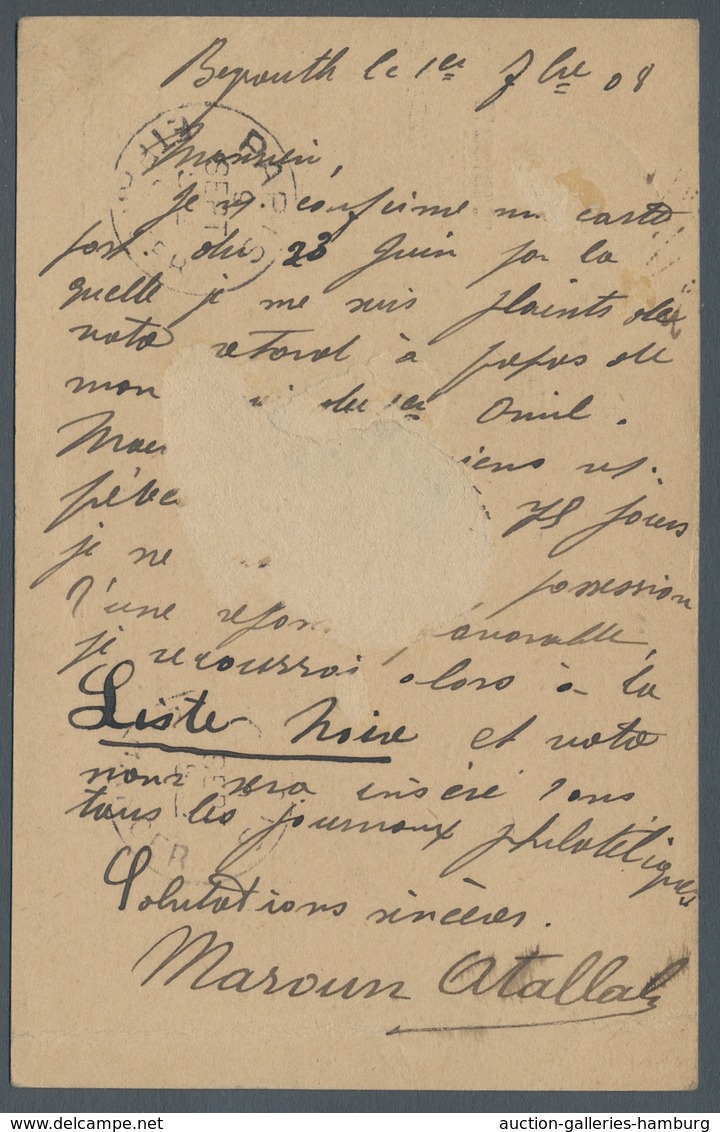 Beyrouth le 1er 7bre 08
Monsieur,
Je v. confirme ma carte
post du 23 Juin par la
quelle je me suis plaints de
votre retard à propos de
mon du 1er Avril.
75 jours
je ne possession
d'une favorable,
je recourrai alors à la
Liste Noire et votre
nom sera inséré dans
tous les journaux philatéliques
Salutations sincères.
Maroun Atallah
PARIS
SEPT
auction-galleries-hamburg